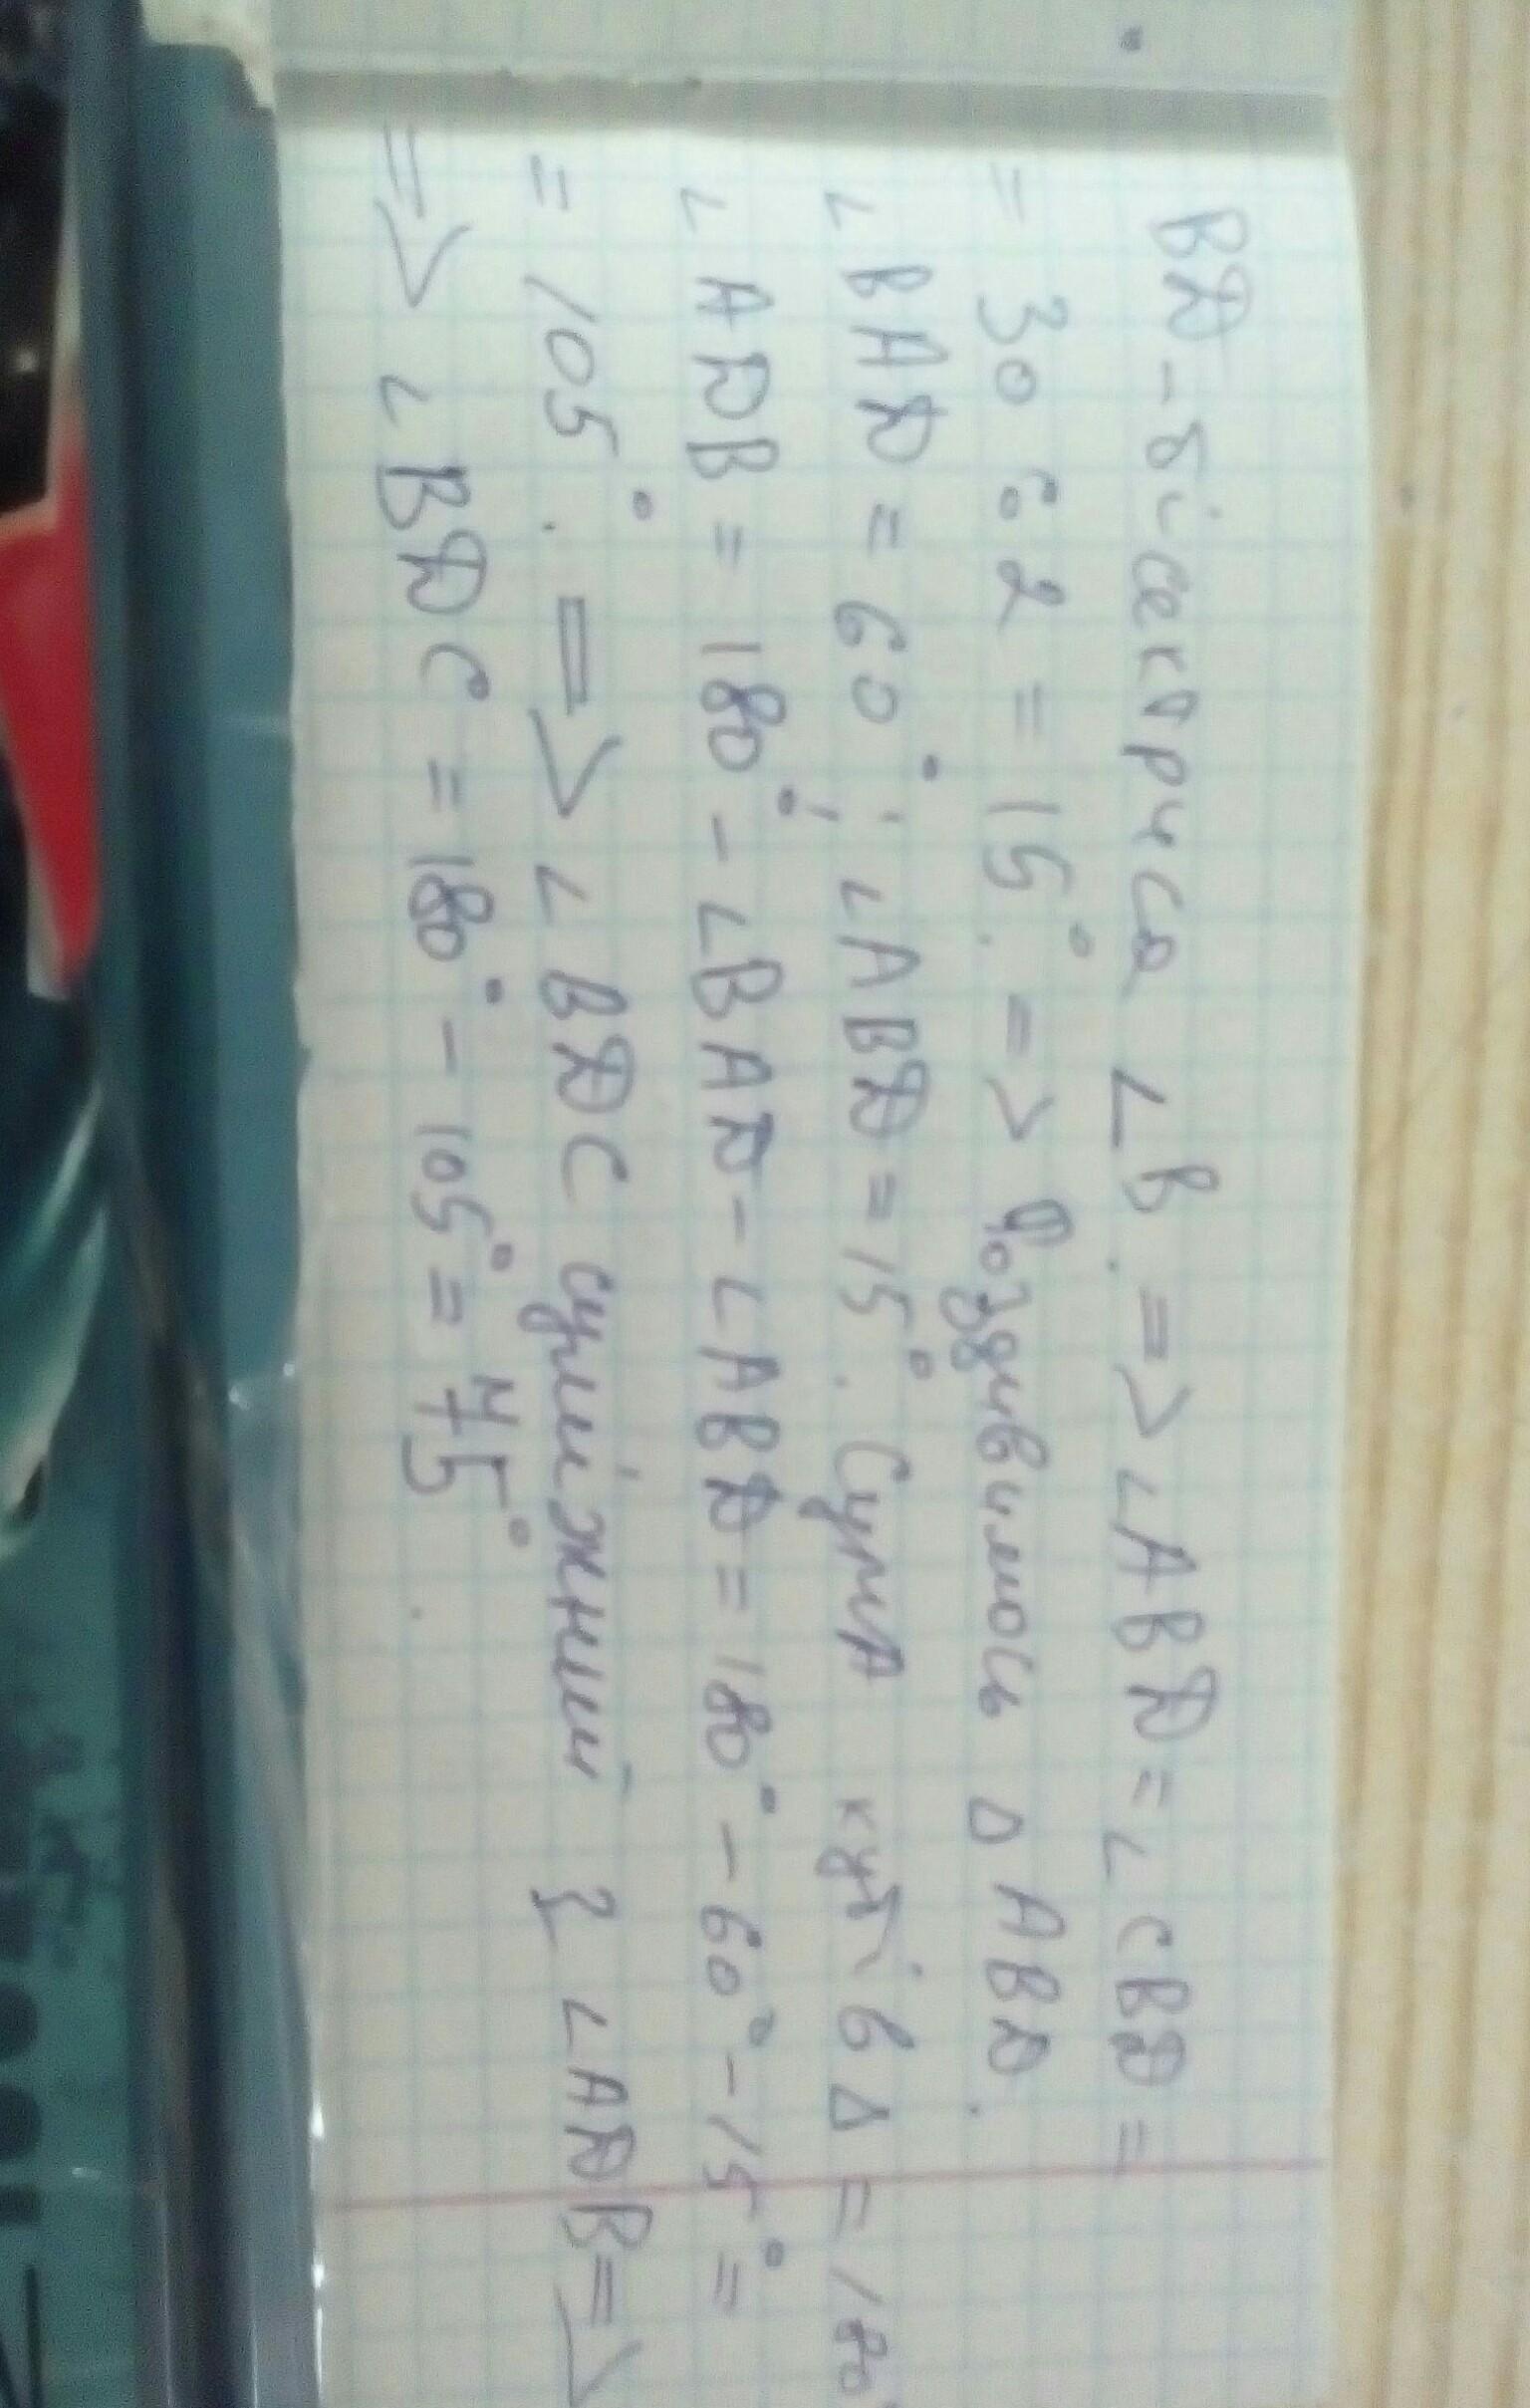 BD - бісектриса ∠B. => ∠ABD = ∠CBD =
= 30 : 2 = 15°. => Роздивимось Δ ABD.
∠BAD = 60°; ∠ABD = 15°. Сума кутів Δ = 180°
∠ADB = 180° - ∠BAD - ∠ABD = 180° - 60° - 15° =
= 105°. => ∠BDC суміжний з ∠ADB =>
=> ∠BDC = 180° - 105° = 75°.